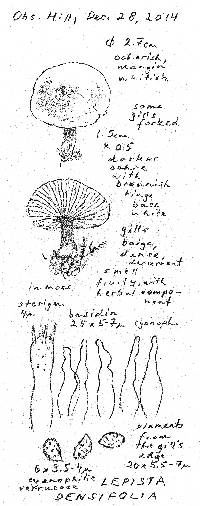 Obs. Hill, Dec. 28, 2014
¢ 2.7cm
ocherish,
margin
whitish
some
gills
forked
1.5cm
x 0.5
darker
ochre
with
brownish
tinge
base
white
gills
beige,
dense,
decurrent
smell
fruity, with
herbal compo-
nent
in moss
sterigm.
4µ
basidia
25 x 5-7µ
cyanoph.
elements
from
the gill's
edge
20 x 5.5-7µ
6 x 3.5-4µ
cyanophilic
verrucose
LEPISTA
DENSIFOLIA